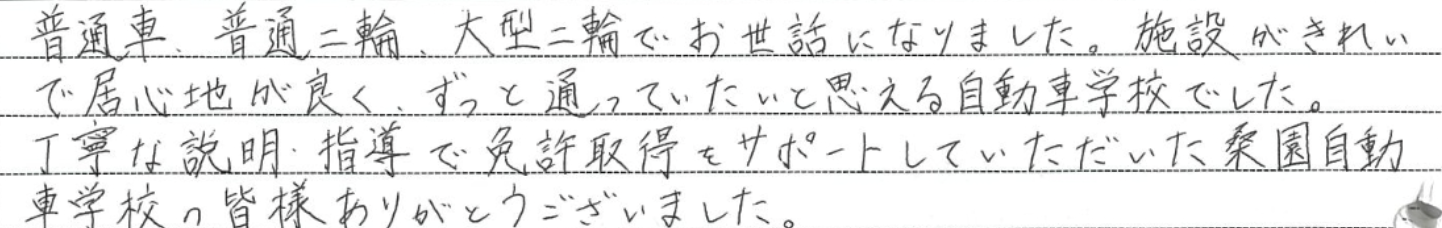 普通車、普通二輪、大型二輪でお世話になりました。施設がきれい
で居心地が良く、ずっと通っていたいと思える自動車学校でした。
丁寧な説明・指導で免許取得をサポートしていただいた桑園自動
車学校の皆様ありがとうございました。